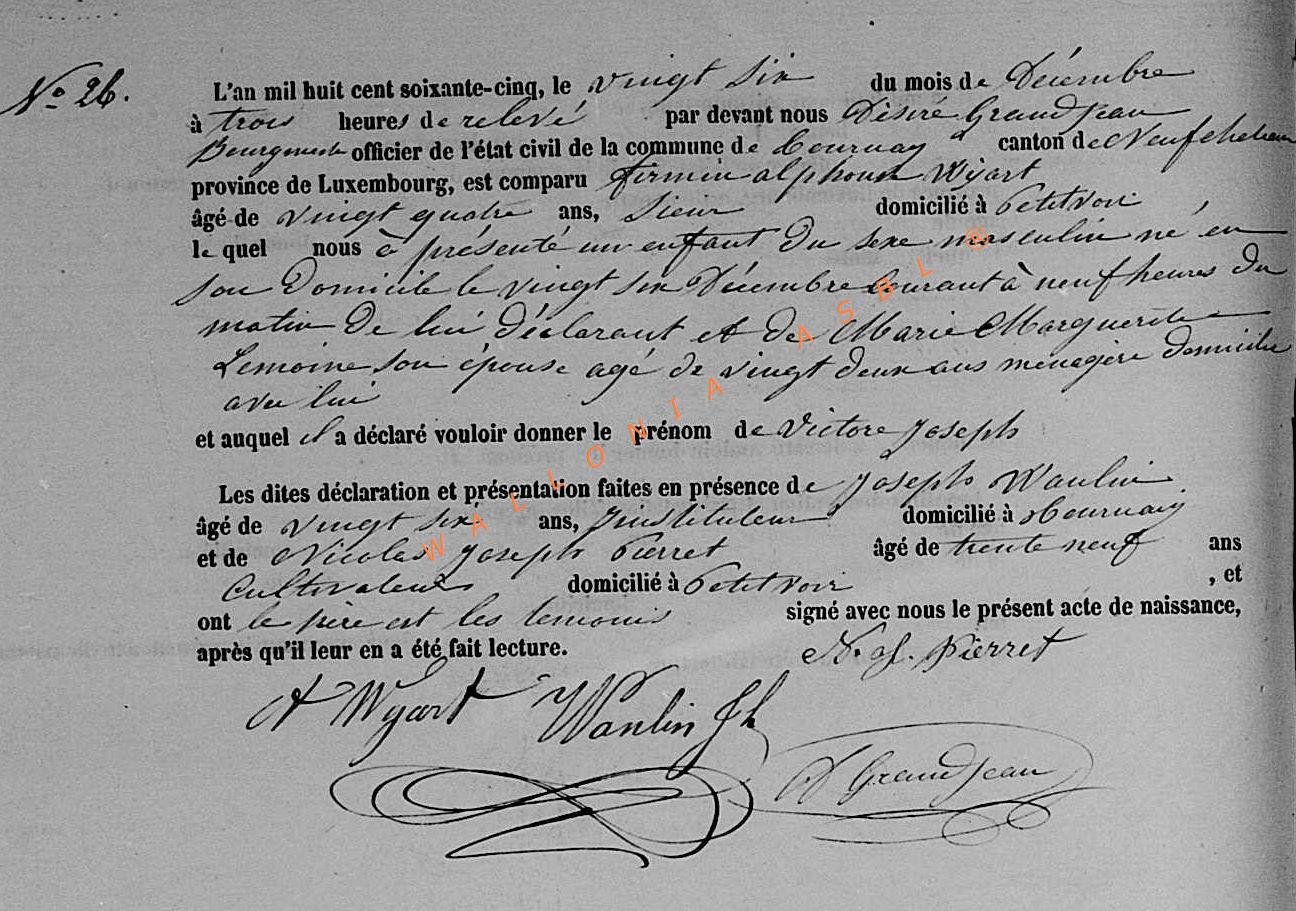 No 26.
L'an mil huit cent soixante-cinq, le vingt six du mois de Décembre
à trois heures de relevé par devant nous Désiré Grandjean
Bourgmestre officier de l'état civil de la commune de Tournay canton de Neufchateau
province de Luxembourg, est comparu firmin alphonse Wyart
âgé de vingt quatre ans, domicilié à Petitvoir
le quel nous à présenté un enfant du sexe masculin né en
son Domicile le vingt six Décembre courant à neuf heures du
matin de lui déclarant et de Marie Marguerite
Lemoine son épouse agé de vingt deux ans ménagère domicilie
avec lui
et auquel il a déclaré vouloir donner le prénom de Victore Joseph
Les dites déclaration et présentation faites en présence de Joseph Wanlin
âgé de vingt six ans, instituteur domicilié à Tournay
et de Nicolas Joseph Pierret âgé de trente neuf ans
Cultivateur domicilié à Petitvoir , et
ont le père est les temoins signé avec nous le présent acte de naissance,
après qu'il leur en a été fait lecture.
N. J. Pierret
A Wyart Wanlin Jh
D Grandjean
WALLONIA ASBL ©